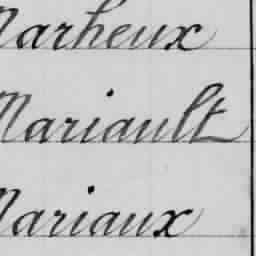 Marheux
Mariault
Mariaux